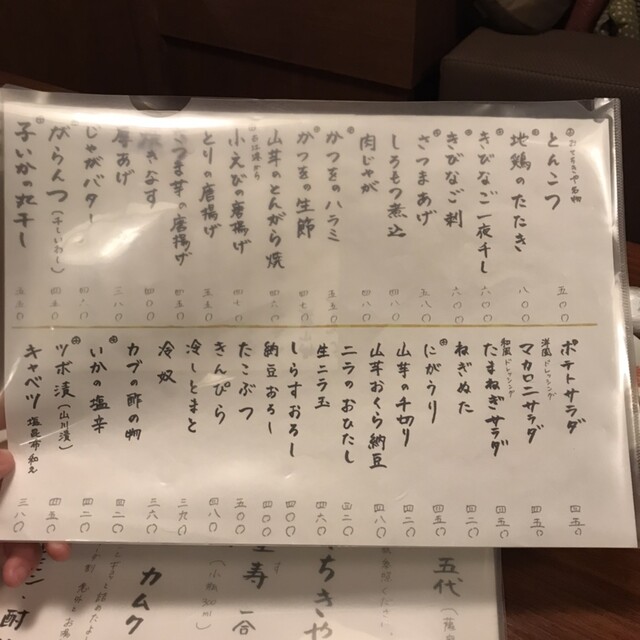 とんこつ 五〇〇
地鶏のたたき 八〇〇
きびなご一夜干し 六〇〇
きびなご刺 六〇〇
さつまあげ 五八〇
しろもつ煮込 四八〇
肉じゃが 四八〇
かつをのハラミ 五五〇
かつをの生節
山芋のとんがら焼 四六〇
小えびの唐揚げ 四七〇
とりの唐揚げ 五五〇
さつま芋の唐揚げ 四五〇
焼きなす 四〇〇
厚あげ 三八〇
じゃがバター 四六〇
がらんつ（干しいわし） 四五〇
子いかの丸干し 五五〇
ポテトサラダ 四五〇
洋風ドレッシング
マカロニサラダ 四五〇
和風ドレッシング
たまねぎサラダ 四五〇
ねぎぬた 四二〇
にがうり 四五〇
山芋の千切り 四二〇
山芋おくら納豆 四八〇
ニラのおひたし 四二〇
生ニラ玉 四六〇
しらすおろし 四〇〇
納豆おろし 四〇〇
たこぶつ 五〇〇
きんぴら 四八〇
冷しとまと 三九〇
冷奴 三六〇
カブの酢の物 四二〇
いかの塩辛 四二〇
ツボ漬（山川漬） 四五〇
キャベツ 塩昆布和え 三八〇
五代
ちきや
寿 一合
カムク